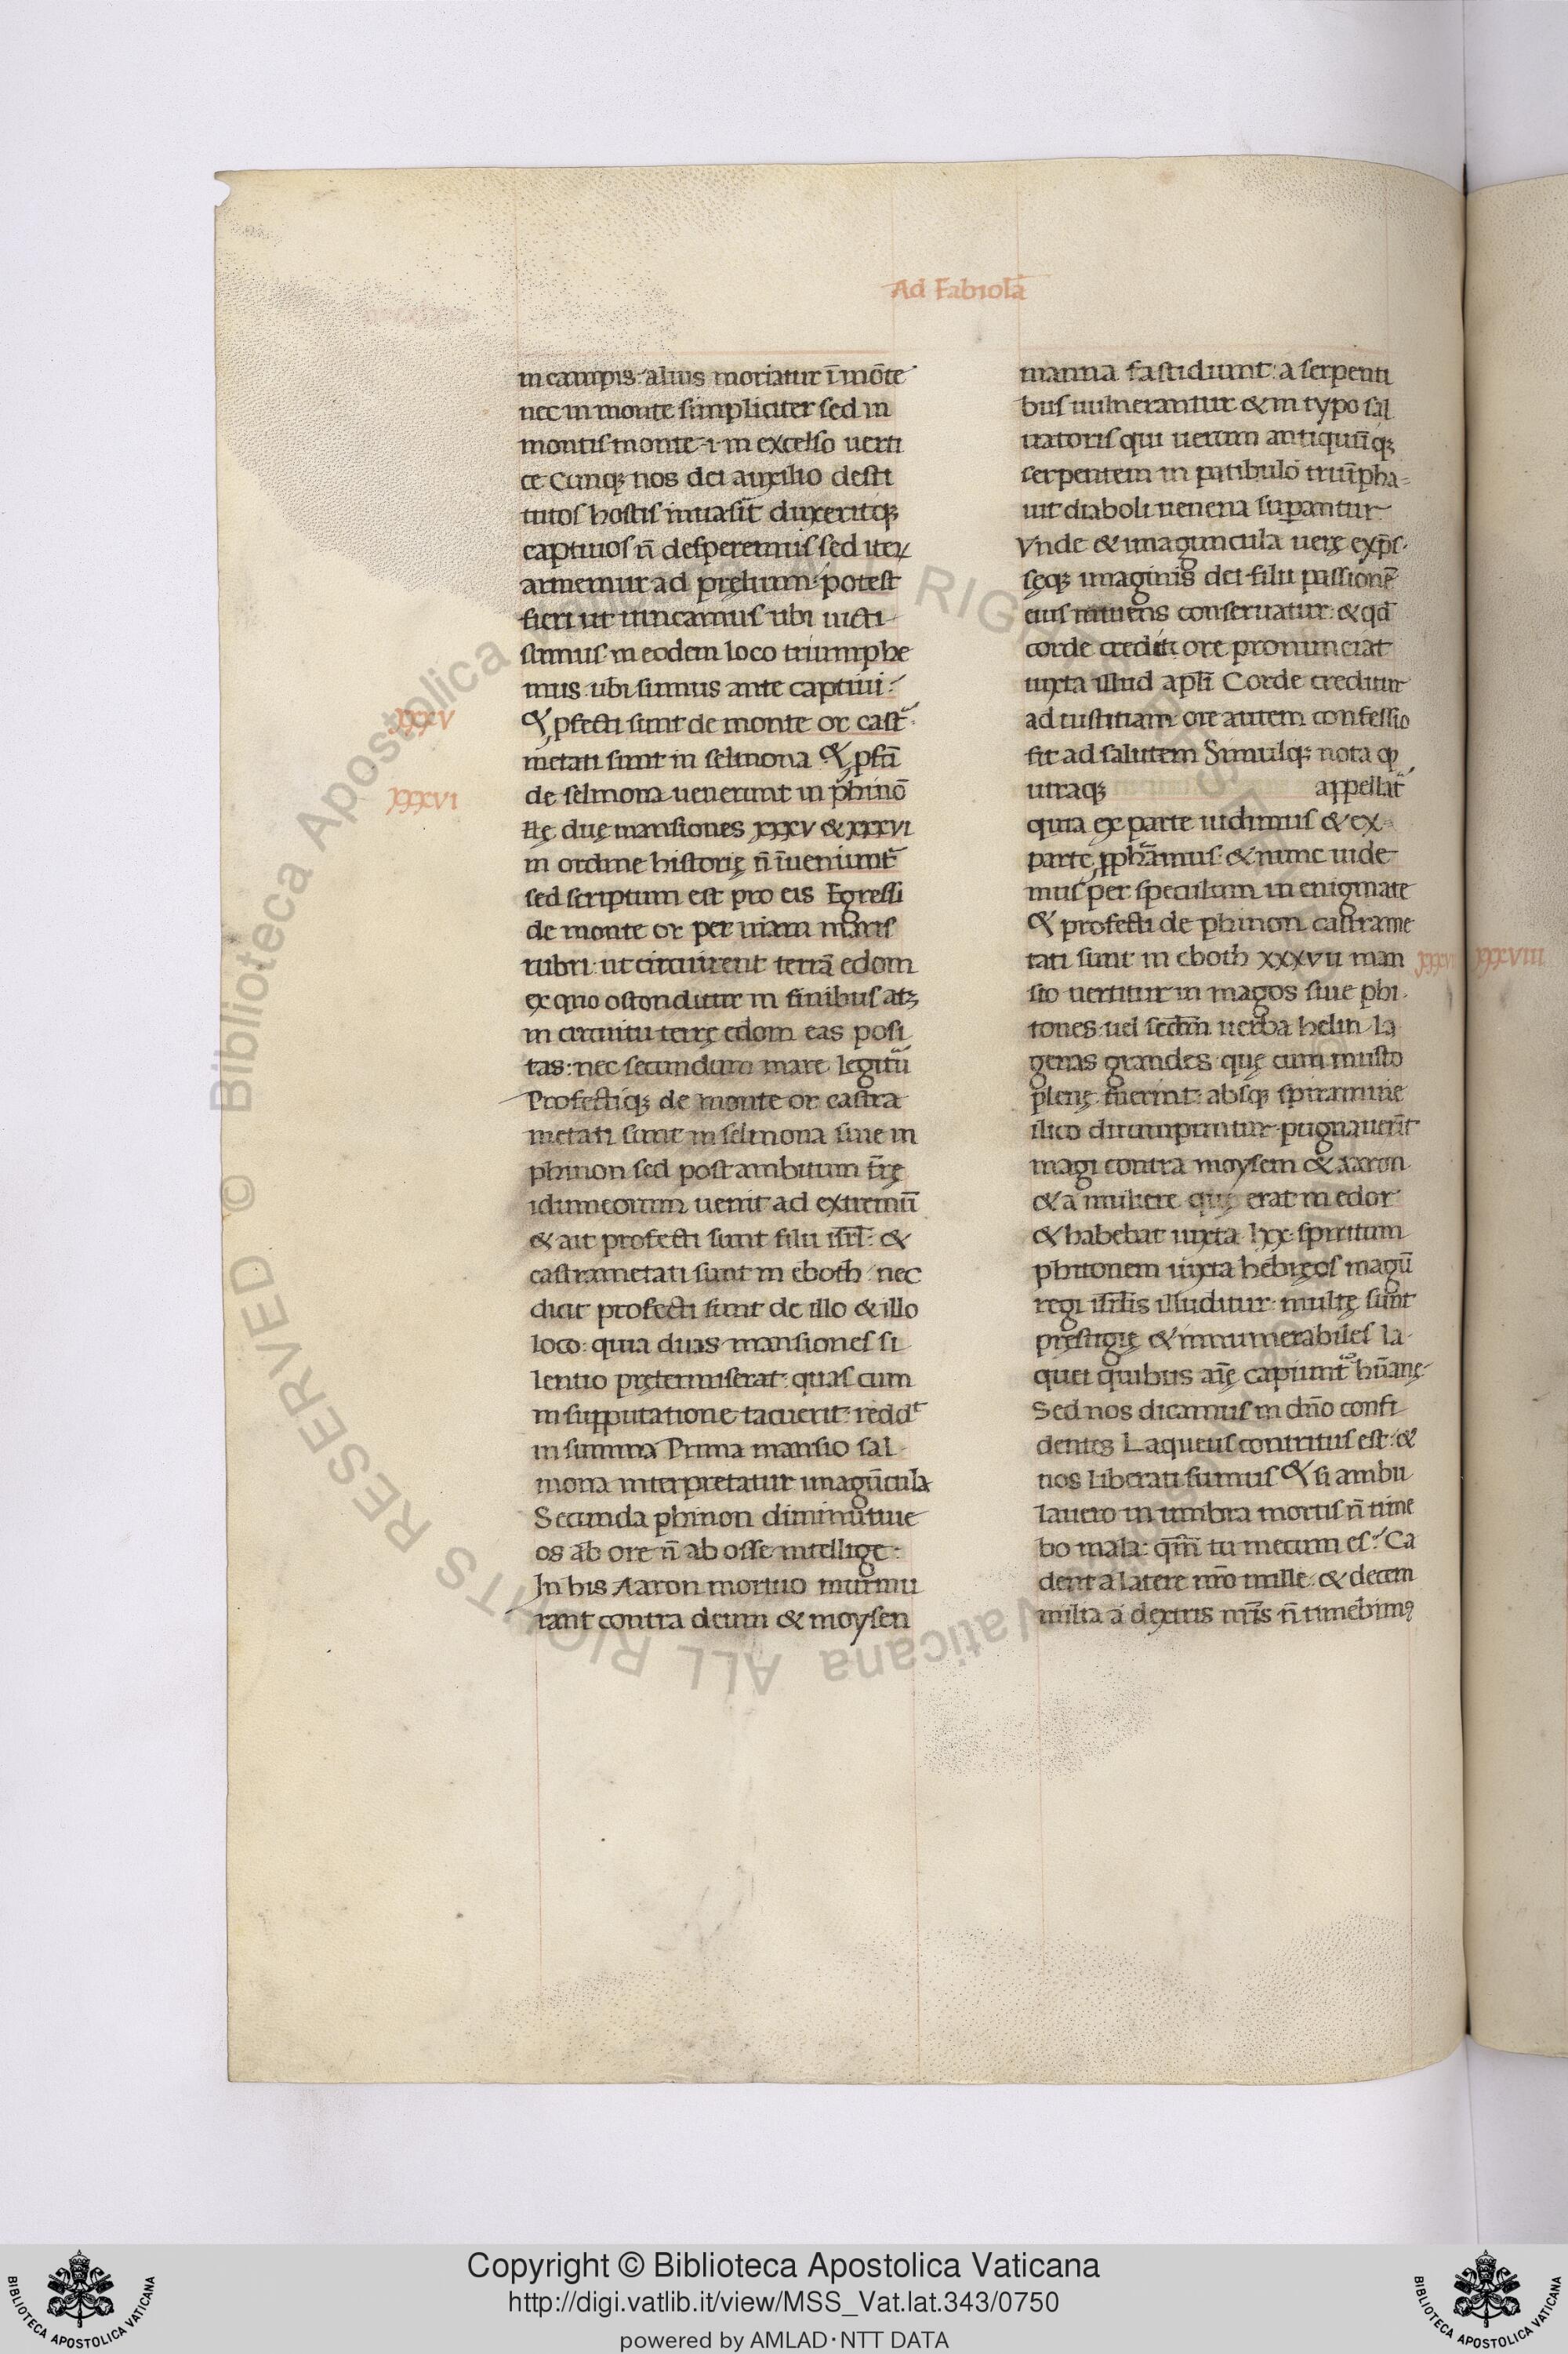 Ad Fabiolā
in campis: alius moriatur ī mōte
nec in monte simpliciter sed in
montis monte .i. in excelso uerti
ce Cunq; nos dei auxilio desti
tutos hostis inuasit̄ duxeritq;
captiuos n̄ desperemus sed iteꝝ
armemur ad pręlium: potest
fieri ut uincamus ubi uicti
sumus in eodem loco triumphe
mus ubi simus ante captiui:
XXXV
& ꝓfecti sunt de monte or cast͛
metati sunt in selmona & ꝓfcī
XXXVI
de selmona uenerunt in phinō
Hę duę mansiones XXXV & XXXVI
in ordine historię n̄ īueniunt͛
sed scriptum est pro eis Egressi
de monte or per uiam maris
rubri ut circuirent terrā edom
ex quo ostonditur in finibus atq;
in circuitu terrę edom eas posi
tas: nec secundum mare legitu͛
Profectiq; de monte or castra
metati sunt in selmona siue in
phinon sed post ambitum tr̄ę
idumeorum uenit ad extremū
& ait profecti sunt filii isrl̄: &
castrametati sunt in eboth nec
dicit profecti sunt de illo & illo
loco: quia duas mansiones si
lentio prętermiserat: quas cum
in supputatione tacuerit: reddᵗ
in summa Prima mansio sal
mona interpretatur imagūcula
Secunda phinon diminutiue
os ab ore n̄ ab osse intellige:
In his Aaron mortuo murmu
rant contra deum & moysen
manna fastidiunt: a serpenti
bus uulnerantur & in typo sal
uatoris qui uerum antiquūq;
serpentem in patibulo triūpha=
uit diaboli uenena suꝑantur
Vnde & imaguncula uerę exp̄s
sęq; imaginis dei filii passionē
eius intuens conseruatur: & qd̄
corde credit ore pronunciat
iuxta illud apl̄i Corde creditur
ad iustitiam ore autem confessio
fit ad salutem Simulq; nota ꝙ
utraq; appellat͛
quia ex parte uidimus & ex
parte ꝓphāmus: & nunc uide
mus per speculum in enigmate
& profecti de phinon castrame
tati sunt in eboth XXXVII man XXXVII XXXVIII
sio uertitur in magos siue phi
tones uel secdm̄ uerba heliu la
genas grandes quę cum musto
plenę fuerint: absq; spiramine
ilico dirumpuntur pugnauer̄t
magi contra moysem & aaron
& a muliere quę erat in edor
& habebat iuxta lxx spiritum
phitonem iuxta hebręos magū
regi isrl̄is illuditur: multę sunt
pręstigię & innumerabiles la
quei quibus aīę capiunt͛ hūanę
Sed nos dicamus in dn̄o confi
dentes Laqueus contritus est: &
nos liberati sumus & si ambu
lauero in umbra mortis n̄ time
bo mala: qm̄ tu mecum es: Ca
dent a latere nr̄o mille & decem
milia a dextris nr̄is n̄ timebimꝰ
© Biblioteca Apostolica Vaticana ALL RIGHTS RESERVED
BIBLIOTECA APOSTOLICA VATICANA
Copyright © Biblioteca Apostolica Vaticana
http://digi.vatlib.it/view/MSS_Vat.lat.343/0750
powered by AMLAD·NTT DATA
BIBLIOTECA APOSTOLICA VATICANA